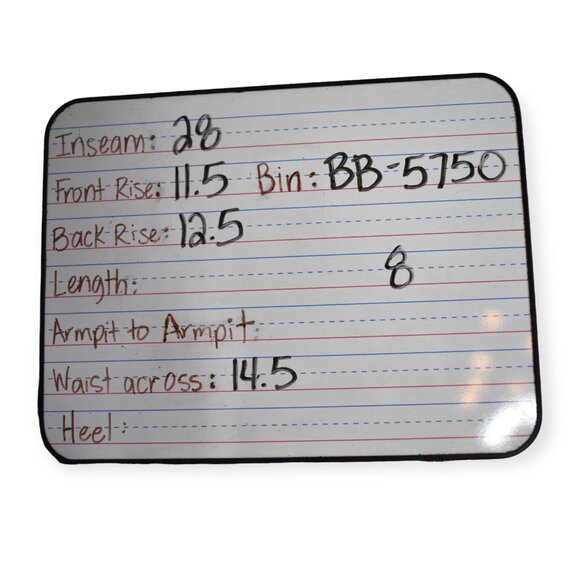 Inseam: 28
Front Rise: 11.5 Bin: BB-5750
Back Rise: 12.5
Length: 8
Armpit to Armpit:
Waist across: 14.5
Heel: